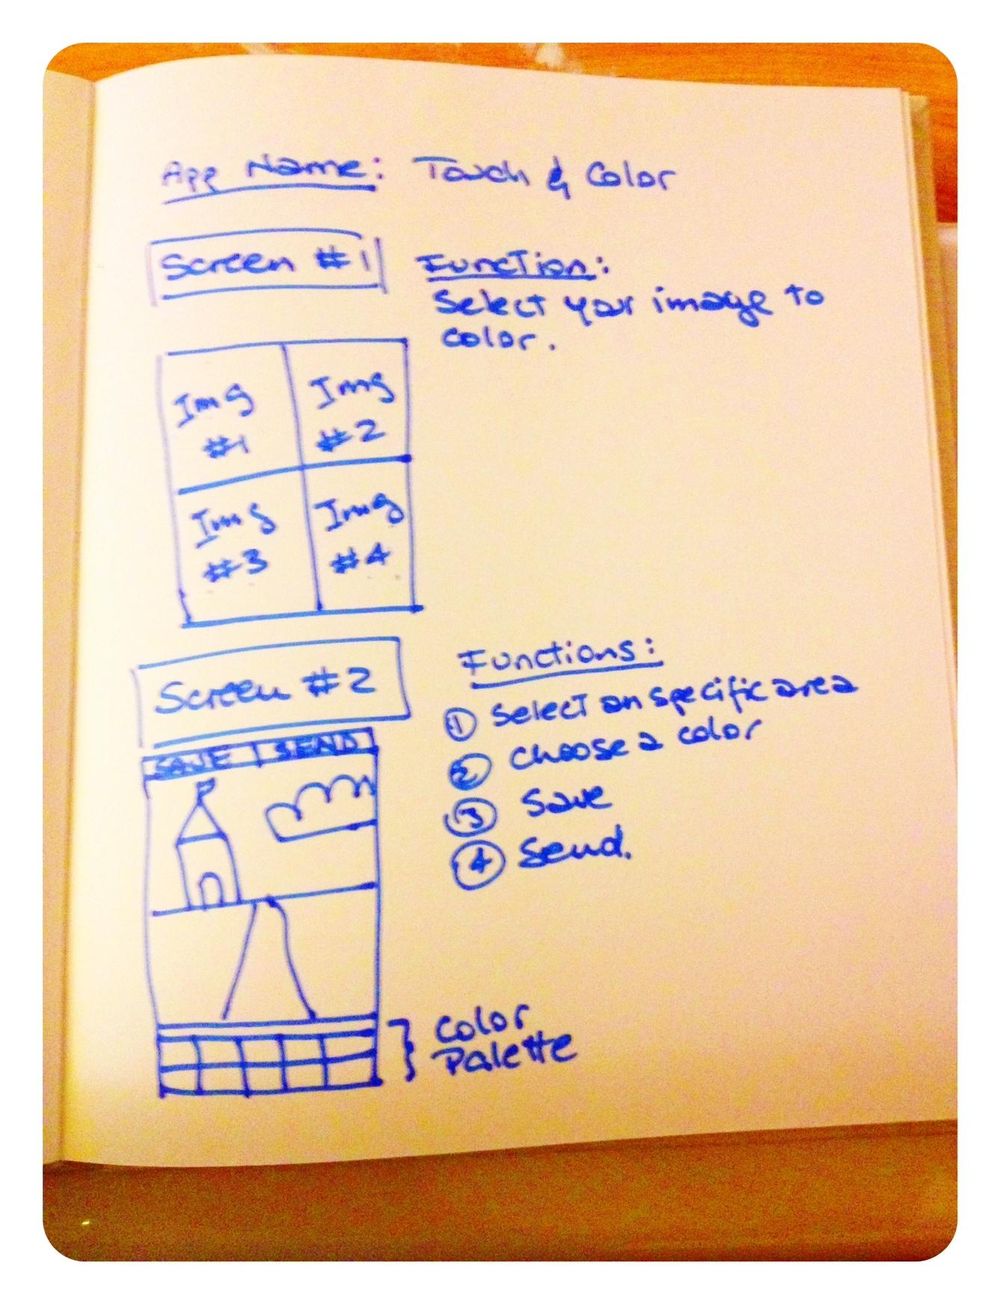 App Name: Touch & Color
Screen #1
Function:
Select your image to
color.
Img
#1
Img
#2
Img
#3
Img
#4
Screen #2
Functions:
① Select an specific area
② choose a color
③ Save
④ Send.
SAVE | SEND
Color
Palette